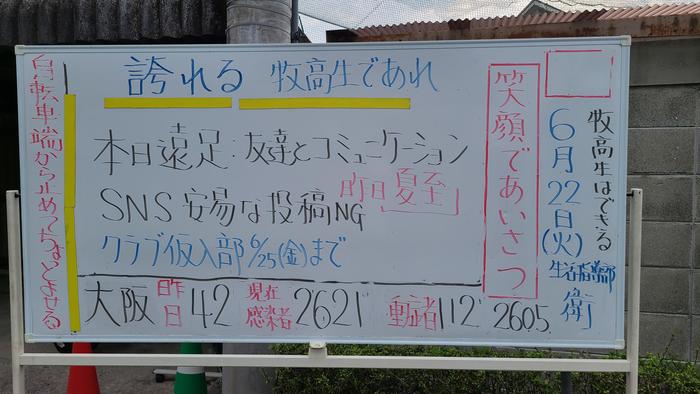 誇れる 牧高生であれ
本日遠足:友達とコミュニケーション
昨日夏至
SNS 安易な投稿NG
クラブ仮入部6/25(金)まで
大阪 昨日 42 現在感染者 2621 重症者 112 2605
笑顔であいさつ
牧高生はできる
6月22日(火)
生活指導部
衛
自転車端から止めてちょっとよせる